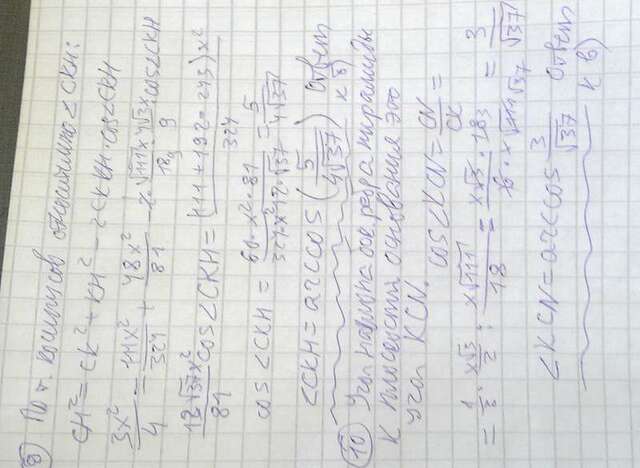 9) По т. косинусов относительно <CKH:
CH² = CK² + KH² - 2CK·KH·cos<CKH
3x²/4 = 111x²/324 + 48x²/81 - 2·√111x/18·4√3x/9·cos<CKH
12√37x²/81 cos<CKH = (111+192-243)x²/324
cos<CKH = 60·x²·81/324·x²·12·√37 = 5/4√37
<CKH = arccos(5/4√37) Ответ к б)
10) Угол наклона бок ребра пирамиды
к плоскости основания это
угол KCN. cos<KCN = CN/CK =
= 1/2·x√3/2 : x√111/18 = x√3·18/·x√111 = 3/√37
<KCN = arccos 3/√37 Ответ к в)